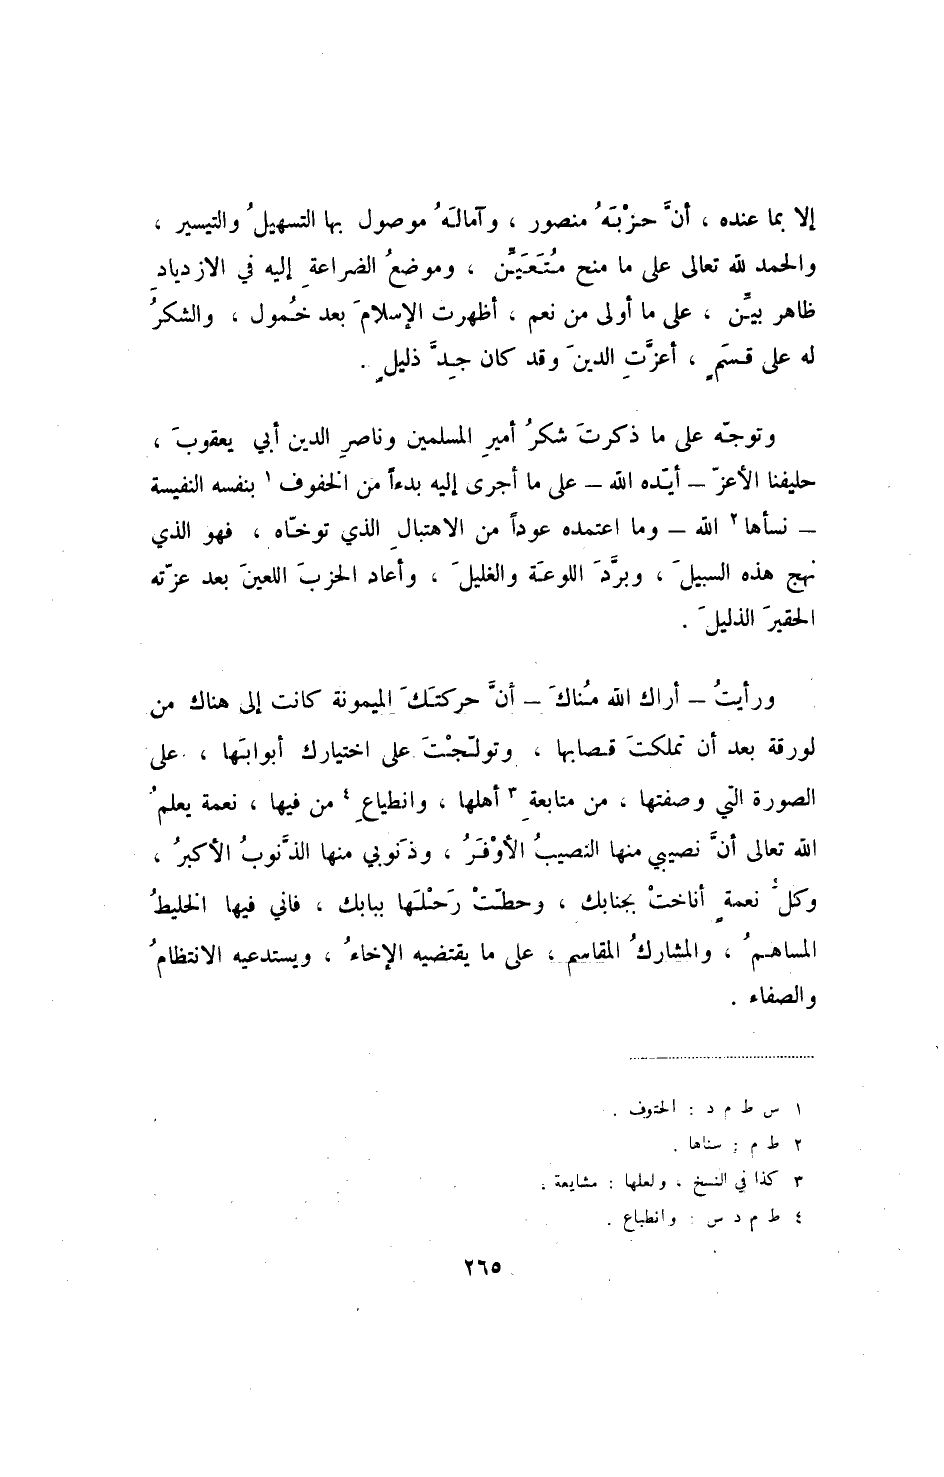 إلا بما عنده ، أنَّ حزْبَهُ منصور ، وآمالَهُ موصول بها التسهيلُ والتيسير ،
والحمد لله تعالى على ما منح مُتَعَيَّن ، وموضعُ الضراعةِ إليه في الازديادِ
ظاهر بيّن ، على ما أولى من نعم ، أظهرت الإسلامَ بعد خُمول ، والشكرُ
له على قسَمٍ ، أعزَّتِ الدينَ وقد كان جدَّ ذليلٍ .
وتوجّه على ما ذكرتَ شكرُ أميرِ المسلمين وناصرِ الدين أبي يعقوبَ ،
حليفنا الأعزّ – أيّده الله – على ما أجرى إليه بدءاً من الخفوف ١ بنفسه النفيسة
– نسأها ٢ الله – وما اعتمده عوداً من الاهتبالِ الذي توخّاه ، فهو الذي
نهج هذه السبيلَ ، وبرَّدَ اللوعة والغليلَ ، وأعاد الحزبَ اللعينَ بعد عزّته
الحقيرَ الذليلَ .
ورأيتُ – أراك الله مُناكَ – أنَّ حركتَكَ الميمونة كانت إلى هناك من
لورقة بعد أن تملكتَ قصابها ، وتولّجْتَ على اختيارك أبوابَها ، على
الصورة التي وصفتها ، من متابعةِ ٣ أهلها ، وانطياعِ ٤ من فيها ، نعمة يعلمُ
الله تعالى أنَّ نصيبي منها النصيبُ الأوْفَرُ ، وذَنوبي منها الذَّنوبُ الأكبرُ ،
وكلُّ نعمةٍ أناختْ بجنابك ، وحطّتْ رَحْلَها ببابك ، فاني فيها الخليطُ
المساهمُ ، والمشاركُ المقاسم ، على ما يقتضيه الإخاءُ ، ويستدعيه الانتظامُ
والصفاء .
١ س ط م د : الحتوف .
٢ ط م : سناها .
٣ كذا في النسخ ، ولعلها : مشايعة .
٤ ط م د س : وانطباع .
٢٦٥